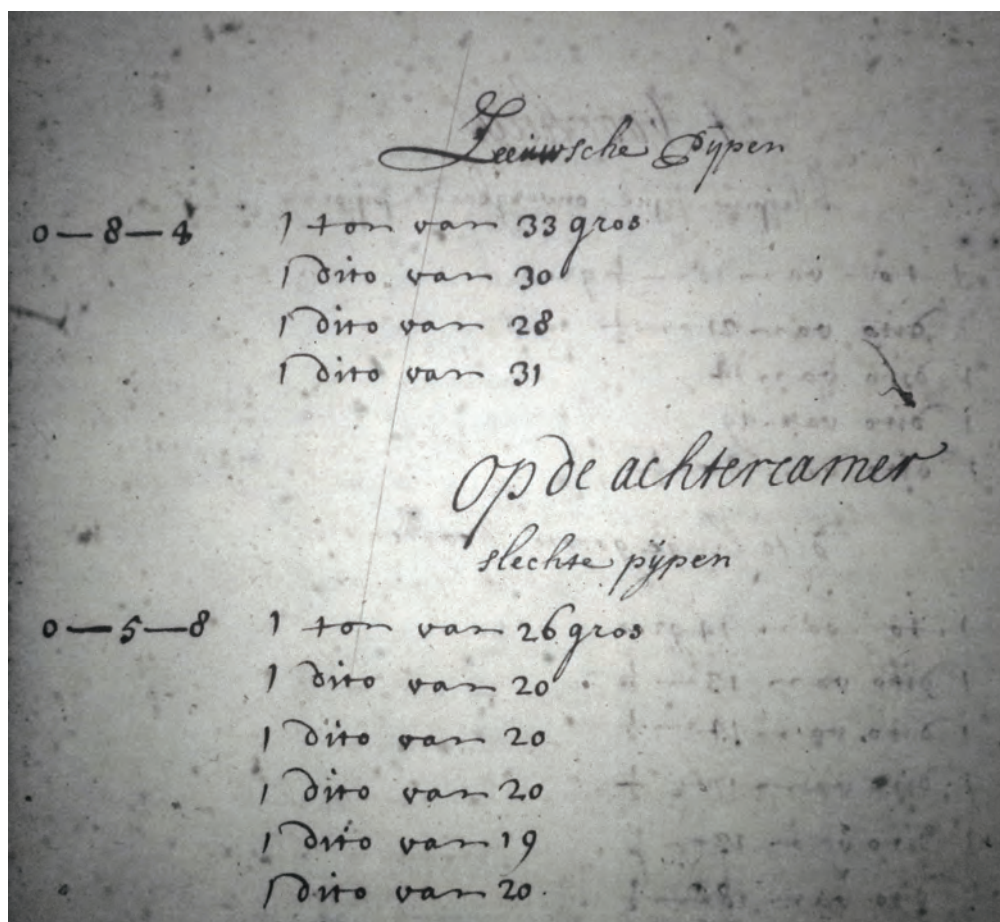 Zeeuwsche Pijpen
0 — 8 — 4 1 ton van 33 gros
1 dito van 30
1 dito van 28
1 dito van 31
Op de achtercamer
slechte pijpen
0 — 5 — 8 1 ton van 26 gros
1 dito van 20
1 dito van 20
1 dito van 20
1 dito van 19
1 dito van 20.